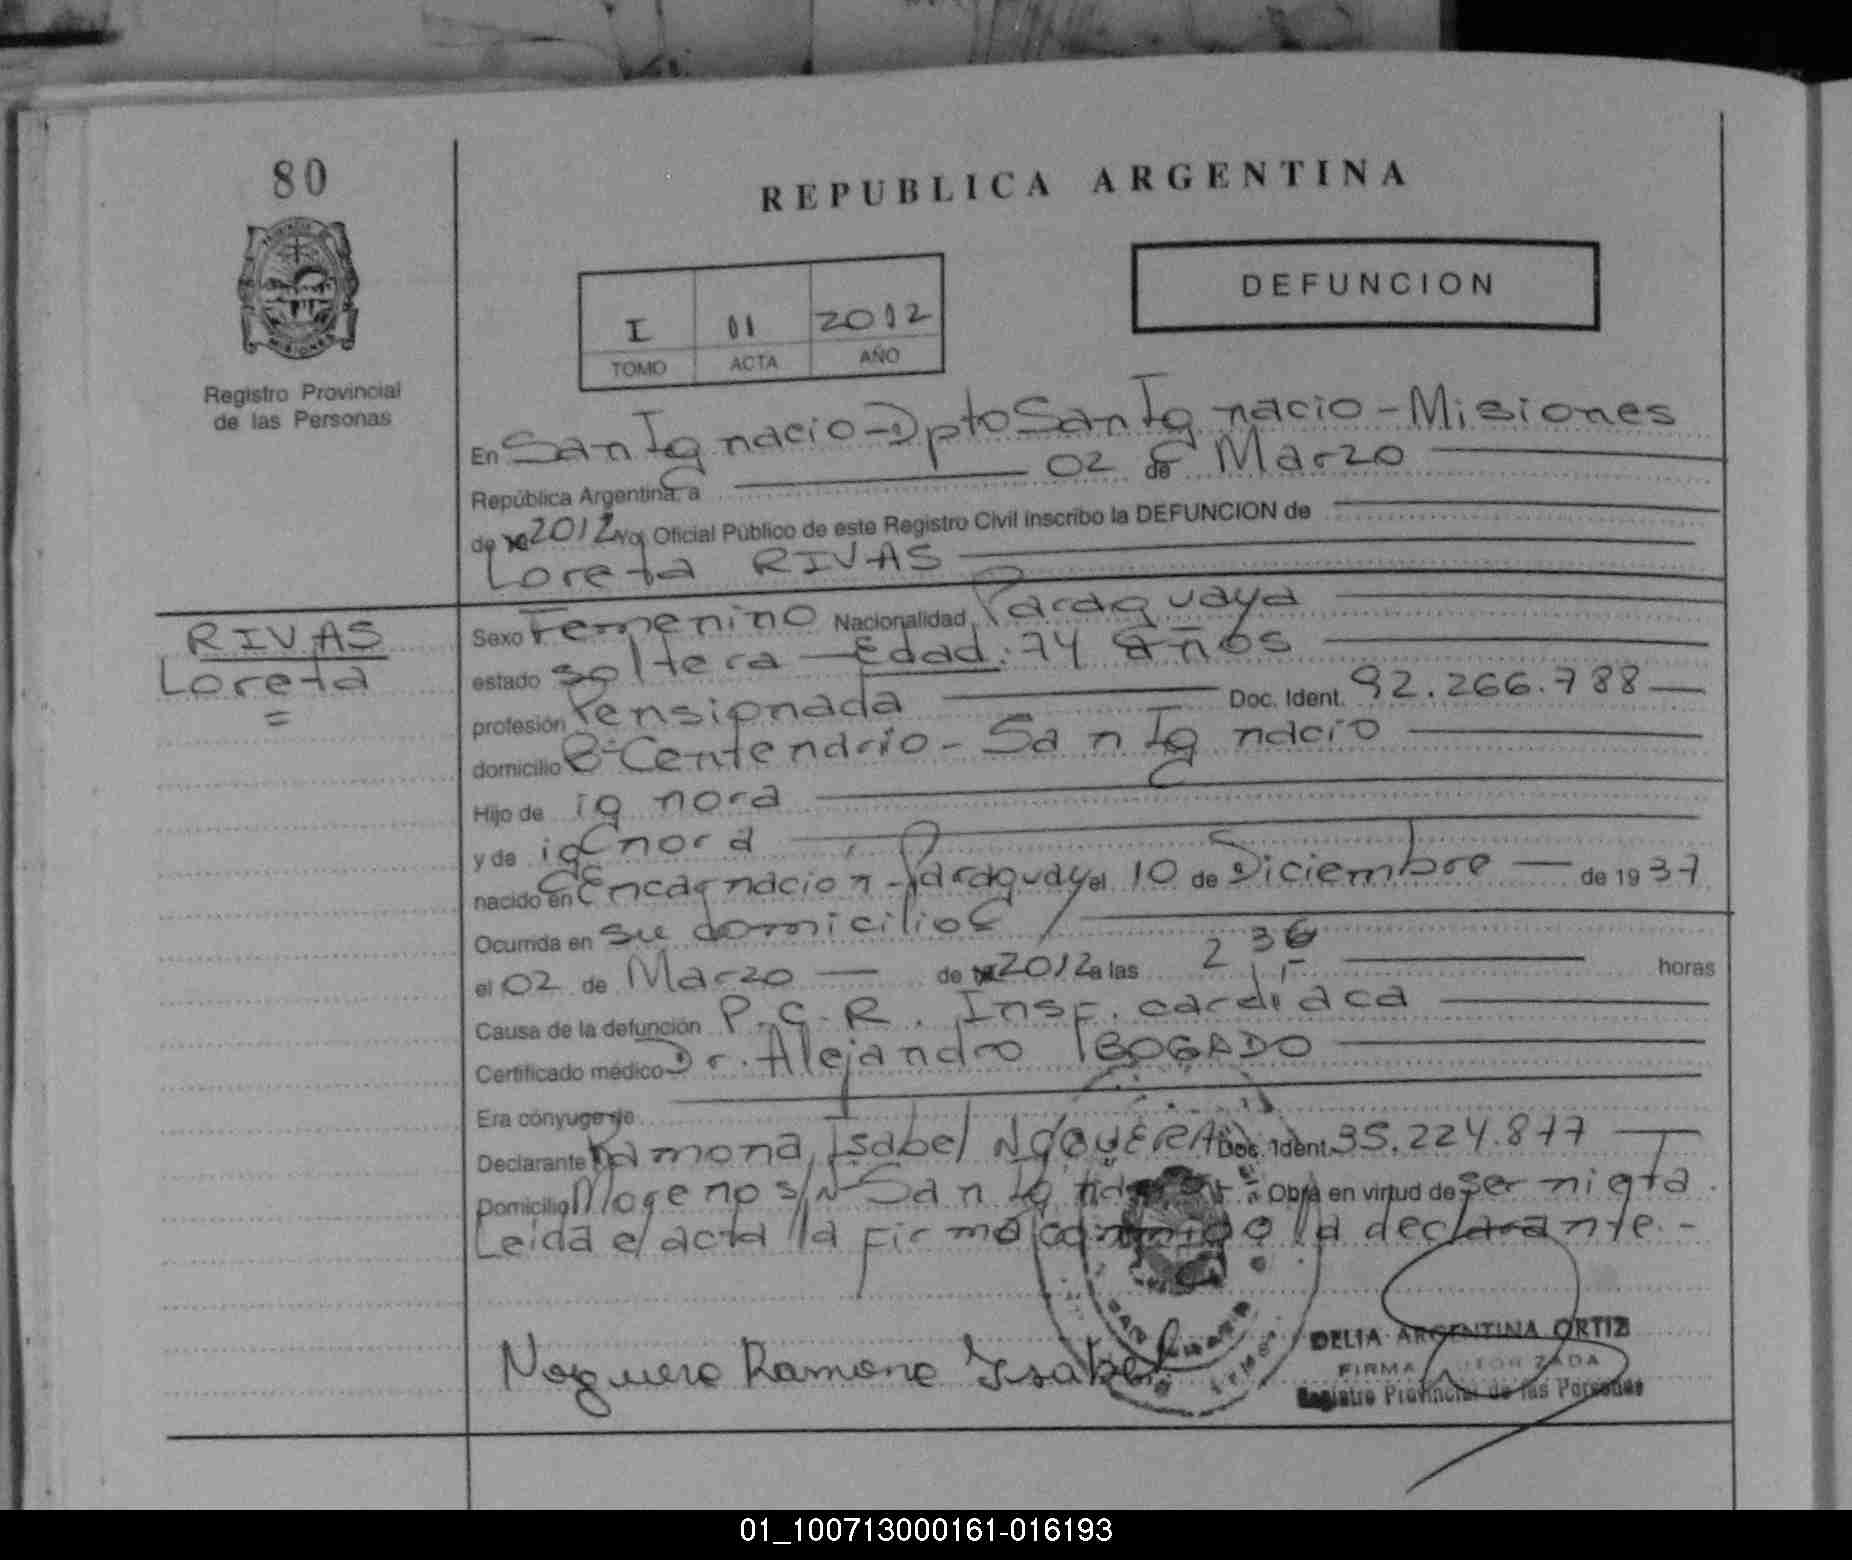 80
REPUBLICA ARGENTINA
I 11 2012
TOMO ACTA AÑO
DEFUNCION
MISIONES
Registro Provincial
de las Personas
En San Ignacio - Dpto San Ignacio - Misiones
República Argentina, a 02 de Marzo
de 2012 Yo, Oficial Público de este Registro Civil inscribo la DEFUNCION de
Loreta RIVAS
RIVAS
Loreta
Sexo Femenino Nacionalidad Paraguaya
estado soltera - Edad: 74 años
profesión Pensionada Doc. Ident. 92.266.788
domicilio Bº Centenario - San Ignacio
Hijo de ignora
y de ignora
nacido en Encarnacion - Paraguay el 10 de Diciembre de 1937
Ocurrida en su domicilio
el 02 de Marzo de 2012 a las 2 36 horas
Causa de la defunción P.C.R. Insf. cardíaca
Certificado médico Dr. Alejandro BOGADO
Era cónyuge de
Declarante Ramona Isabel NOGUERA Doc. Ident. 35.224.877
Domicilio Moreno s/n San Obra en virtud de ser nieta.
Leida el acta la firma conmigo la declarante.-
Noguera Ramona Isabel
DELIA ARGENTINA ORTIZ
FIRMA AUTORIZADA
Registro Provincial de las Personas
01_100713000161-016193